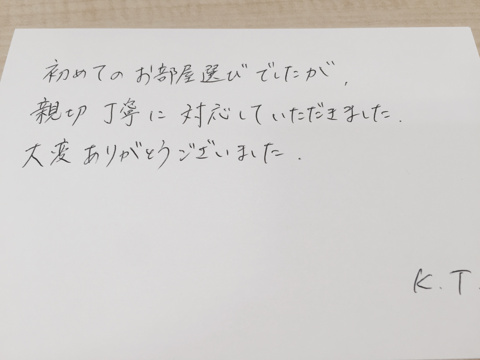 初めてのお部屋選びでしたが,
親切 丁寧に 対応していただきました.
大変 ありがとうございました.
K.T.